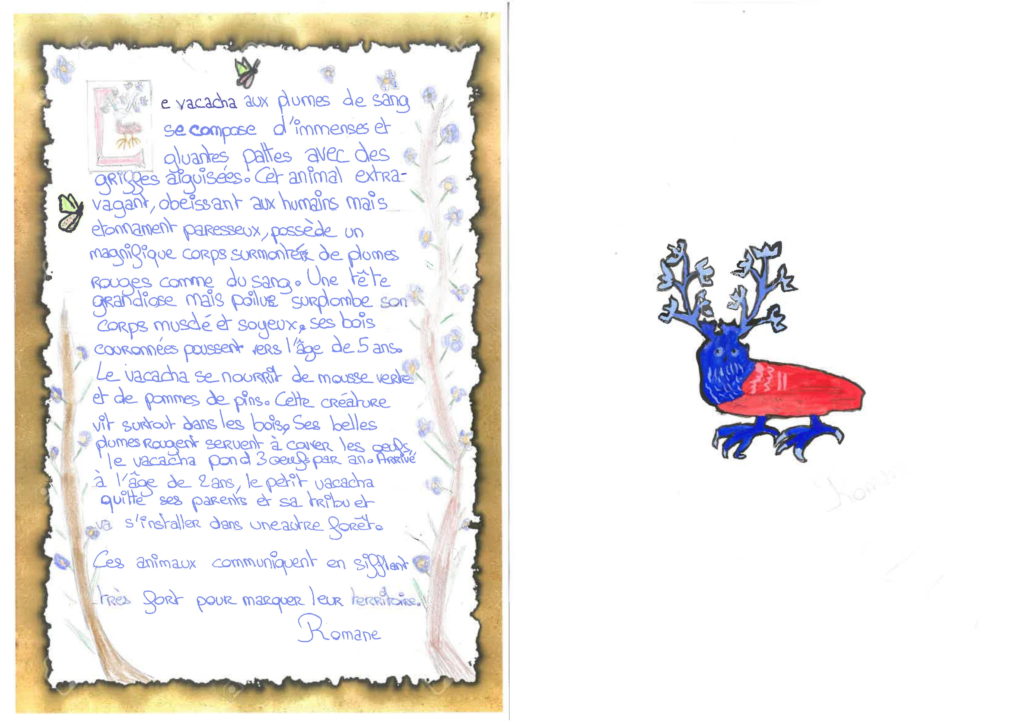 Le vacacha aux plumes de sang
se compose d'immenses et
gluantes pattes avec des
griffes aiguisées. Cet animal extra-
vagant, obeissant aux humains mais
etonnament paresseux, possède un
magnifique corps surmontés de plumes
rouges comme du sang. Une tête
grandiose mais poilue surplombe son
corps musclé et soyeux. Ses bois
couronnées poussent vers l'âge de 5 ans.
Le vacacha se nourrit de mousse verte
et de pommes de pins. Cette créature
vit surtout dans les bois. Ses belles
plumes rougent servent à couver les oeufs,
le vacacha pond 3 oeufs par an. Arrivé
à l'âge de 2 ans, le petit vacacha
quitte ses parents et sa tribu et
va s'installer dans une autre forêt.
Ces animaux communiquent en sifflant
très fort pour marquer leur territoire.
Romane
Romane